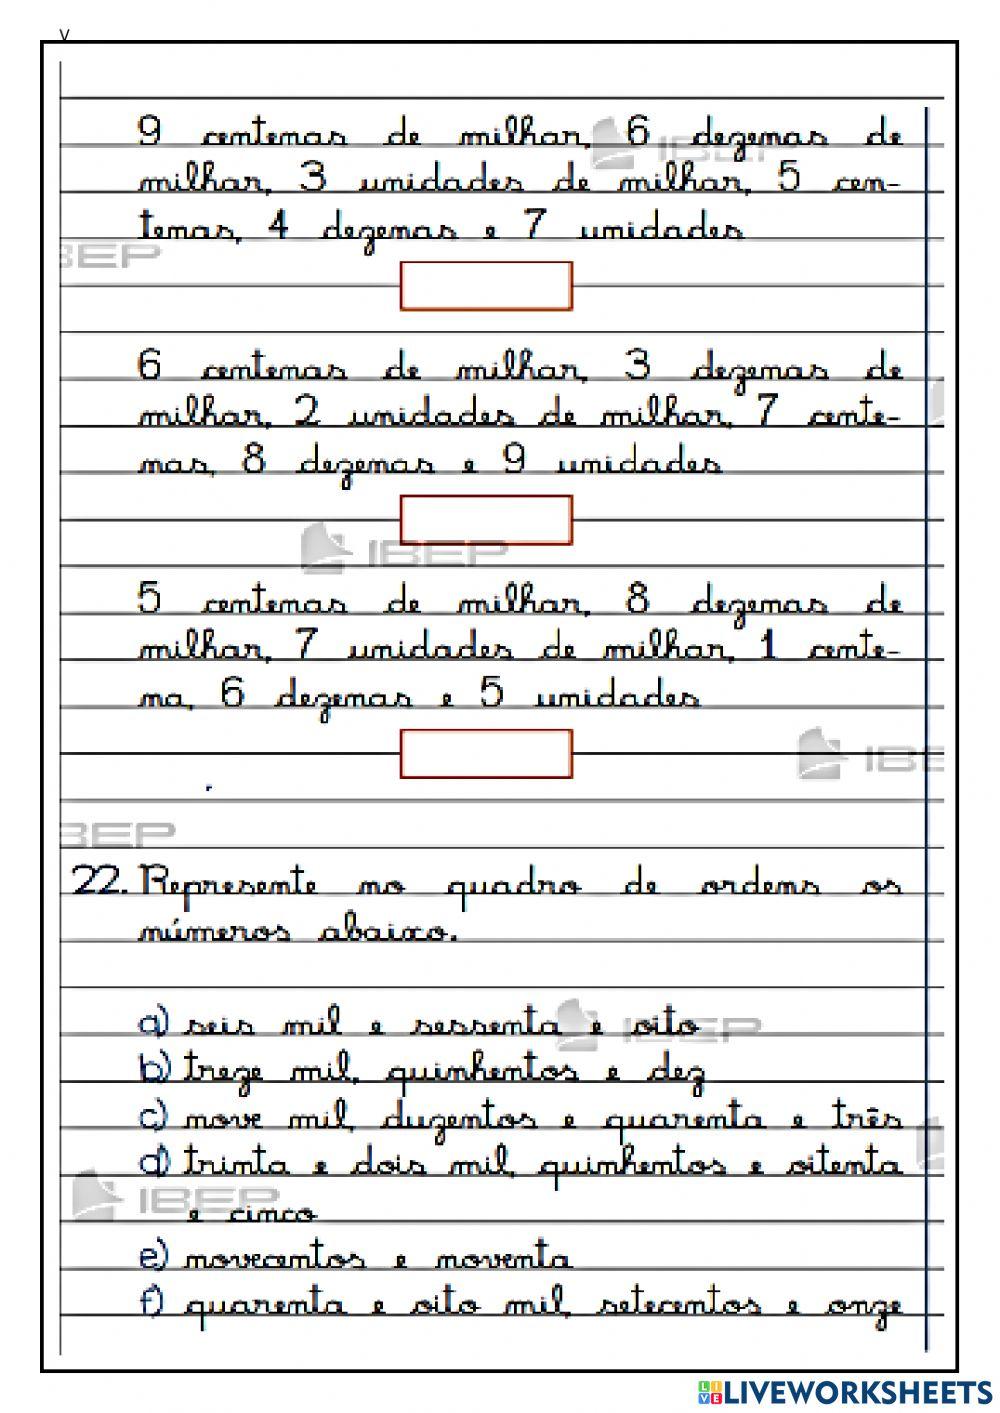 V
9 centenas de milhar, 6 dezenas de
milhar, 3 unidades de milhar, 5 cen-
tenas, 4 dezenas e 7 unidades
IBEP
6 centenas de milhar, 3 dezenas de
milhar, 2 unidades de milhar, 7 cente-
nas, 8 dezenas e 9 unidades
IBEP
5 centenas de milhar, 8 dezenas de
milhar, 7 unidades de milhar, 1 cente-
na, 6 dezenas e 5 unidades
22. Represente no quadro de ordens os
números abaixo.
a) seis mil e sessenta e oito
b) treze mil, quinhentos e dez
c) nove mil, duzentos e quarenta e três
d) trinta e dois mil, quinhentos e oitenta
e cinco
IBEP
e) novecentos e noventa
f) quarenta e oito mil, setecentos e onze
LIVE LIVEWORKSHEETS